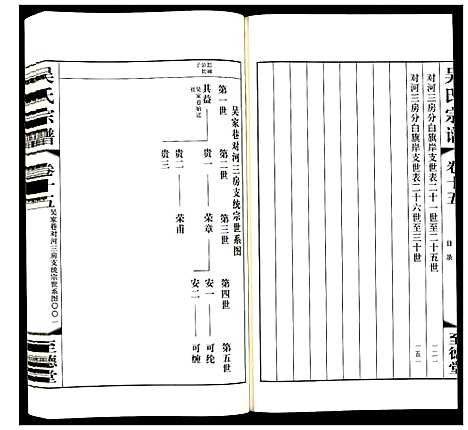 吴氏宗谱
卷十五
目录
至德堂
对河三房分白旗岸支世表二十一世至二十五世
一二一
对河三房分白旗岸支世表二十六世至三十世
一五一
吴家巷对河三房支统宗世系图
第一世
第二世
第三世
第四世
第五世
其益
贵一
荣章
安一
可纶
安二
可缠
贵二
荣甫
贵三
吴家巷始迁
吴氏宗谱
卷十五
吴家巷对河三房支统宗世系图
〇〇一
至德堂